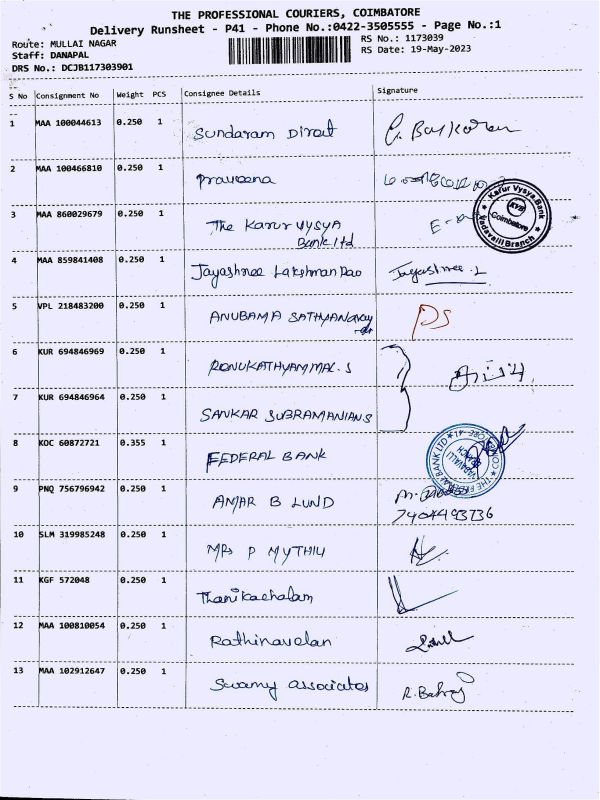 THE PROFESSIONAL COURIERS, COIMBATORE
Delivery Runsheet - P41 - Phone No.:0422-3505555 - Page No.:1
Route: MULLAI NAGAR RS No.: 1173039
Staff: DANAPAL RS Date: 19-May-2023
DRS No.: DCJB117303901
S No Consignment No Weight PCS Consignee Details Signature
1 MAA 100044613 0.250 1 Sundaram Direct
2 MAA 100466810 0.250 1 Praveena
3 MAA 860029679 0.250 1 The Karur VYSYA
Bank Ltd
Karur Vysya Bank
KVB
Coimbatore
Vadavalli Branch
4 MAA 859841408 0.250 1 Jayashree Lakshman Rao Jayashree.L
5 VPL 218483200 0.250 1 ANUBAMA
6 KUR 694846969 0.250 1 RENUKATHYAMMAL.S
7 KUR 694846964 0.250 1 SANKAR SUBRAMANIANS
8 KOC 60872721 0.355 1 FEDERAL BANK
THE FEDERAL BANK LTD
VADAVALLI
BRANCH
9 PNQ 756796942 0.250 1 AMAR B LUND
7404493736
10 SLM 319985248 0.250 1 MRs P MYTHILI
11 KGF 572048 0.250 1 Thanikachalam
12 MAA 100810054 0.250 1 Rathinavelan
13 MAA 102912647 0.250 1 Swamy associates